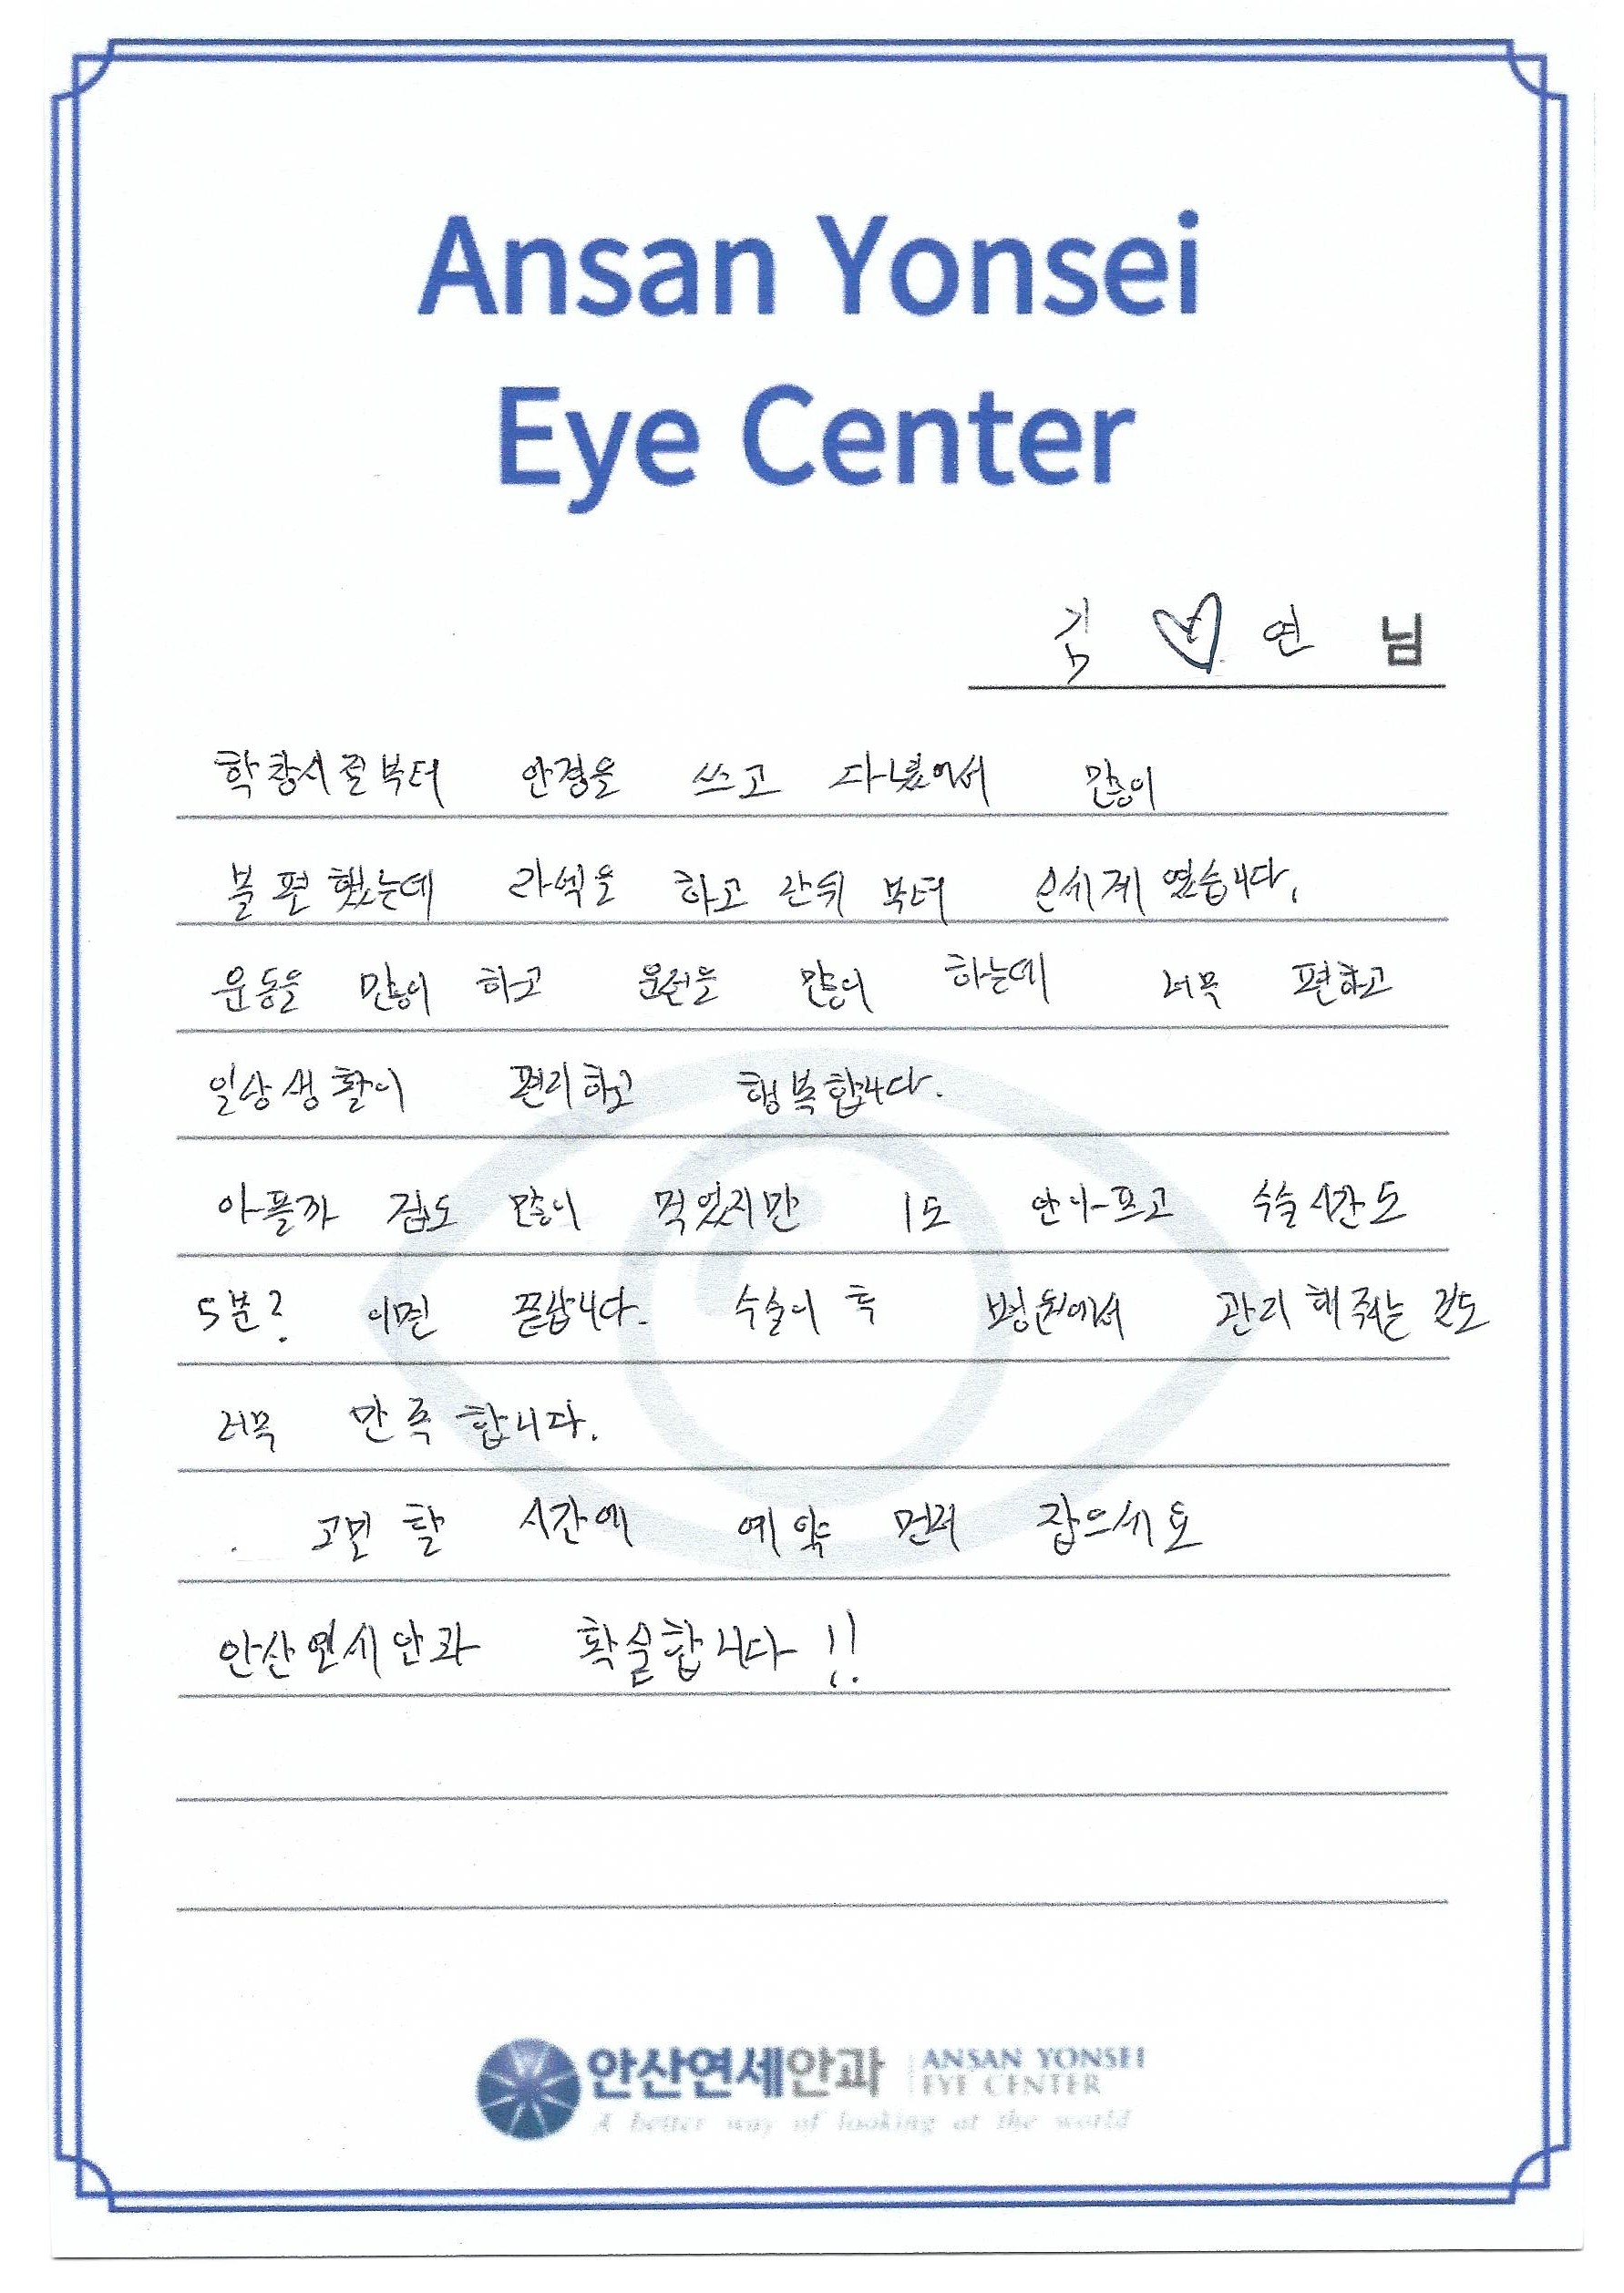 Ansan Yonsei
Eye Center
김 ♡ 연 님
학창시절부터 안경을 쓰고 다녔어서 많이
불편했는데 라섹을 하고 난뒤 부터 신세계 였습니다.
운동을 많이 하고 운전을 많이 하는데 너무 편하고
일상생활이 편리하고 행복합니다.
아플까 겁도 많이 먹었지만 1도 안아프고 수술시간도
5분? 이면 끝납니다. 수술이 후 병원에서 관리해주는 것도
너무 만족합니다.
. 고민 할 시간에 예약 먼저 잡으세요
안산연세안과 확실합니다!!
안산연세안과 ANSAN YONSEI
EYE CENTER
A better way of looking at the world